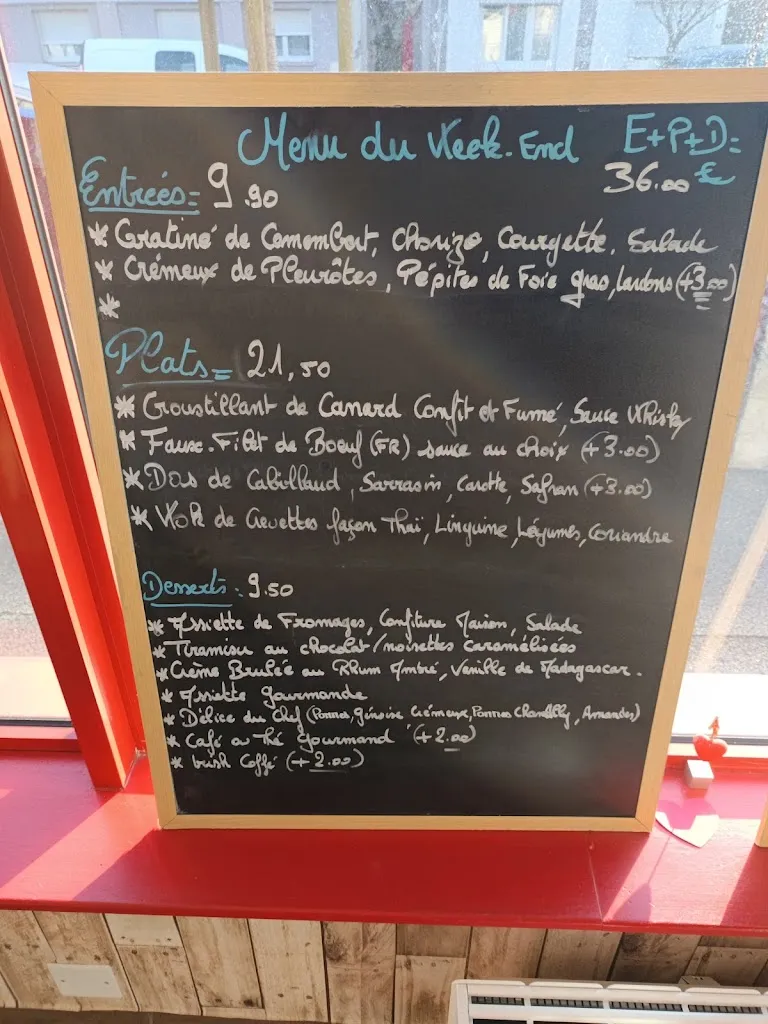 Menu du Week-End E+P+D=
36.00 €
Entrées = 9.90
* Gratiné de Camembert, Chorizo, Courgette, Salade
* Crémeux de Pleurôtes, Pépites de Foie gras, lardons (+3.00)
*
Plats = 21,50
* Croustillant de Canard Confit et Fumé, Sauce Whisky
* Faux-Filet de Boeuf (FR) sauce au choix (+3.00)
* Dos de Cabillaud, Sarrasin, Carotte, Safran (+3.00)
* Wok de Crevettes façon Thaï, Linguine, Légumes, Coriandre
Desserts : 9.50
* Assiette de Fromages, Confiture Maison, Salade
* Tiramisu au chocolat/noisettes caramélisées
* Crème Brulée au Rhum Ambré, Vanille de Madagascar.
* Assiette gourmande
* Délice du Chef (Pommes, génoise Crémeux, Pommes Chantilly, Amandes)
* Café ou Thé gourmand (+2.00)
* Irish Coffé (+2.00)